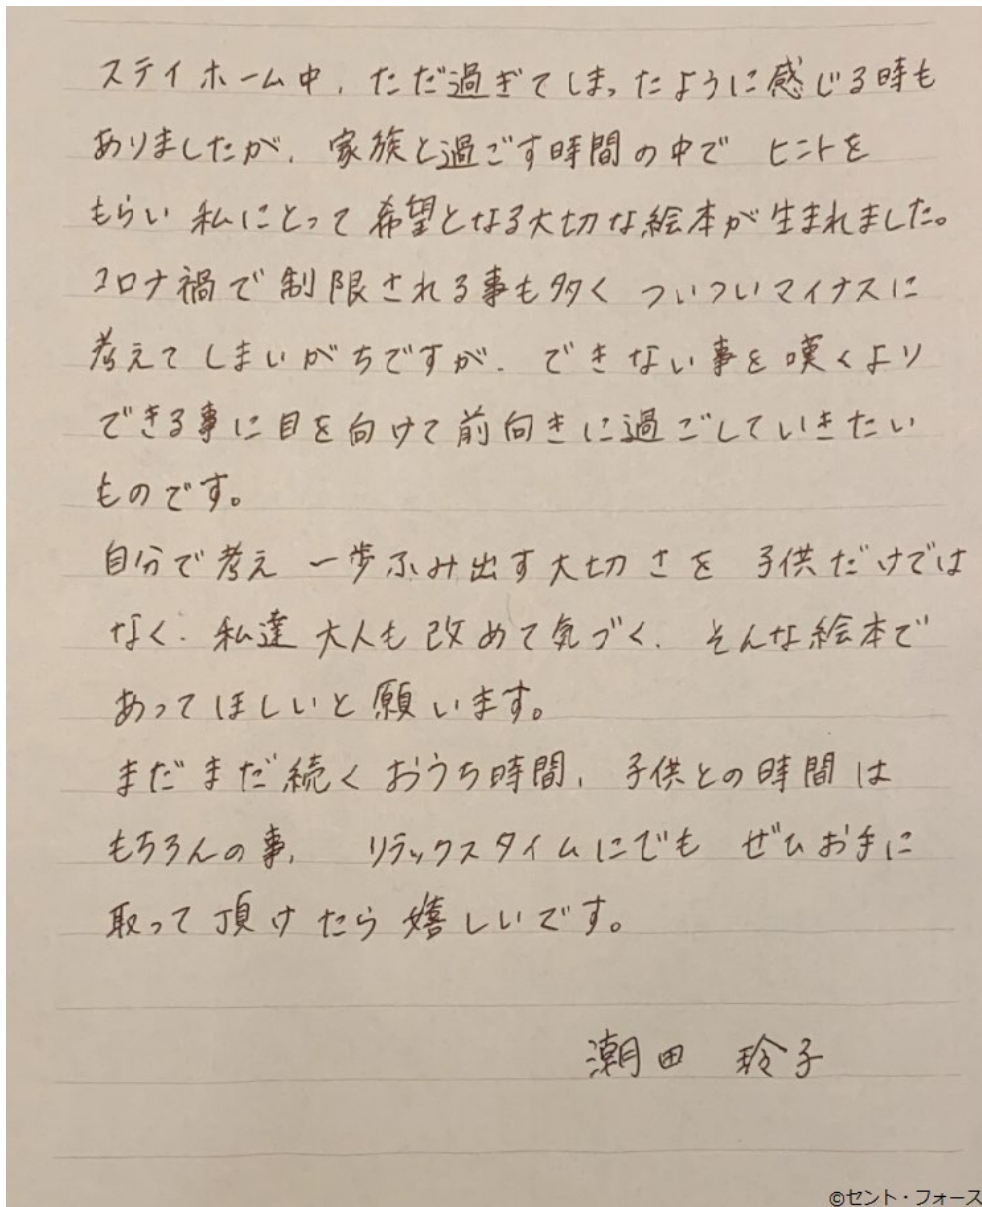 ステイホーム中、ただ過ぎてしまったように感じる時も
ありましたが、家族と過ごす時間の中で ヒントを
もらい 私にとって希望となる大切な絵本が生まれました。
コロナ禍で制限される事も多く ついついマイナスに
考えてしまいがちですが、できない事を嘆くより
できる事に目を向けて前向きに過ごしていきたい
ものです。
自分で考え 一歩ふみ出す大切さを 子供だけでは
なく、私達大人も改めて気づく、そんな絵本で
あってほしいと願います。
まだまだ続くおうち時間、子供との時間は
もちろんの事、 リラックスタイムにでも ぜひお手に
取って頂けたら嬉しいです。
潮田 玲子
©セント・フォース